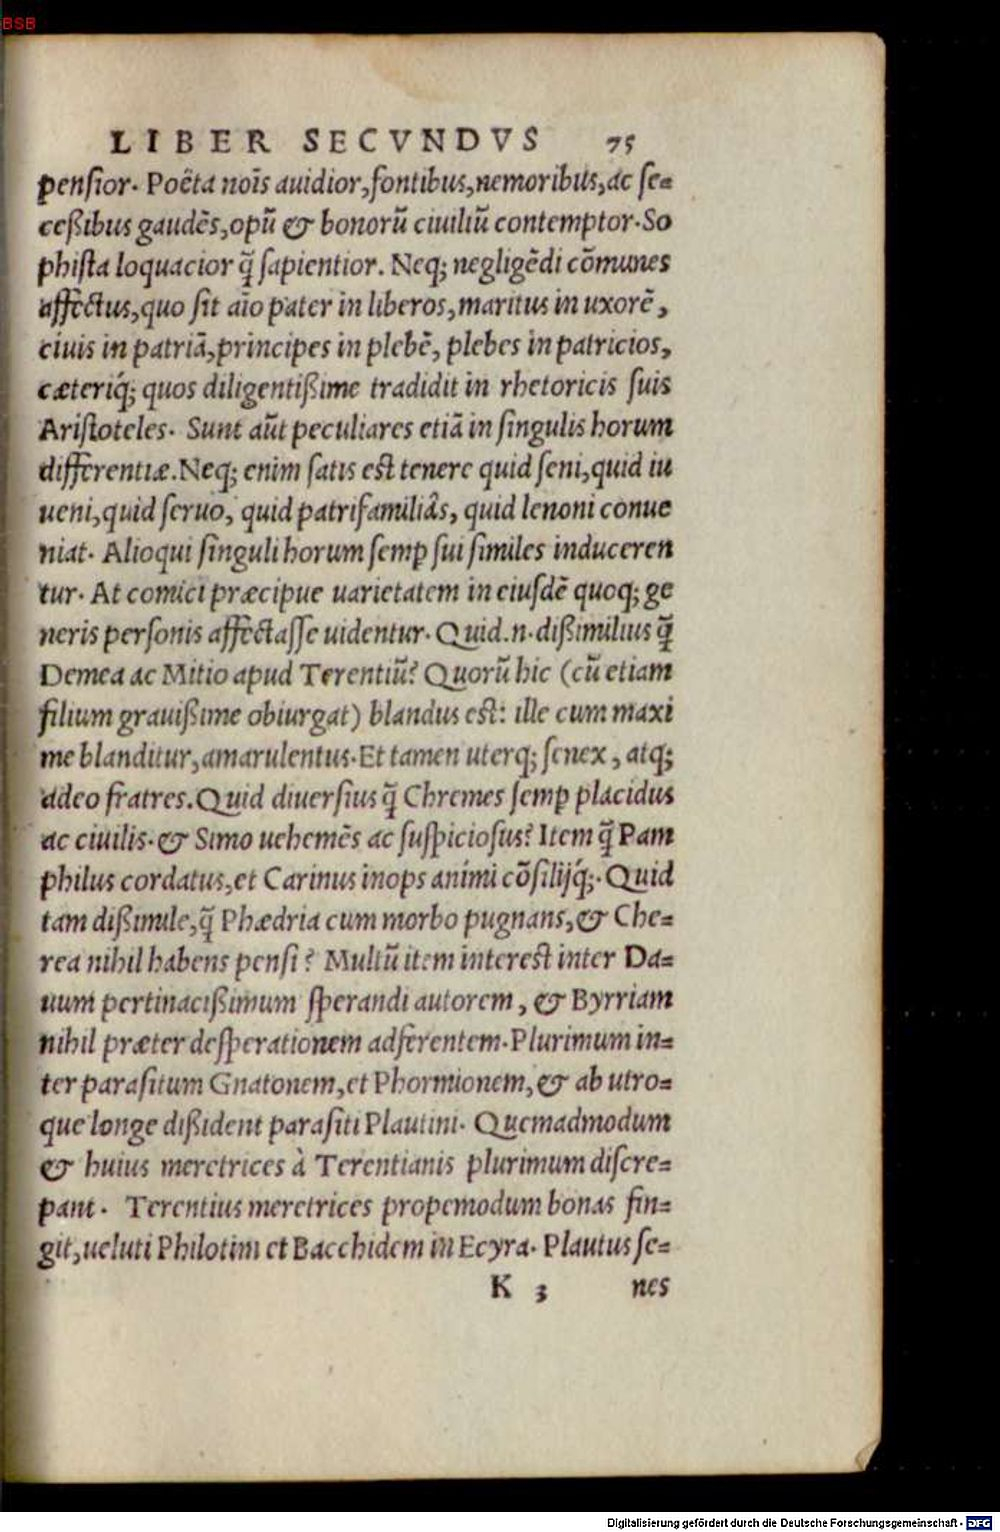 BSB
LIBER SECVNDVS 75
pensior. Poëta noĩs auidior, fontibus, nemoribus, ac se=
ceßibus gaudẽs, opũ & bonorũ ciuiliũ contemptor. So
phista loquacior q̃ sapientior. Neq; negligẽdi cõmunes
affectus, quo sit aĩo pater in liberos, maritus in uxorẽ,
ciuis in patriã, principes in plebẽ, plebes in patricios,
cæteriq́; quos diligentißime tradidit in rhetoricis suis
Aristoteles. Sunt aũt peculiares etiã in singulis horum
differentiæ. Neq; enim satis est tenere quid seni, quid iu
ueni, quid seruo, quid patrifamiliâs, quid lenoni conue
niat. Alioqui singuli horum semꝑ sui similes induceren
tur. At comici præcipue uarietatem in eiusdẽ quoq; ge
neris personis affectasse uidentur. Quid .n. dißimilius q̃
Demea ac Mitio apud Terentiũ? Quorũ hic (cũ etiam
filium grauißime obiurgat) blandus est: ille cum maxi
me blanditur, amarulentus. Et tamen uterq; senex, atq;
adeo fratres. Quid diuersius q̃ Chremes semꝑ placidus
ac ciuilis. & Simo uehemẽs ac suspiciosus? Item q̃ Pam
philus cordatus, et Carinus inops animi cõsilijq́;. Quid
tam dißimile, q̃ Phædria cum morbo pugnans, & Che=
rea nihil habens pensi? Multũ item interest inter Da=
uum pertinacißimum sperandi autorem, & Byrriam
nihil præter desperationem adferentem. Plurimum in=
ter parasitum Gnatonem, et Phormionem, & ab utro=
que longe dißident parasiti Plautini. Quemadmodum
& huius meretrices à Terentianis plurimum discre=
pant. Terentius meretrices propemodum bonas fin=
git, ueluti Philotim et Bacchidem in Ecyra. Plautus se=
K 3 nes
Digitalisierung gefördert durch die Deutsche Forschungsgemeinschaft - DFG